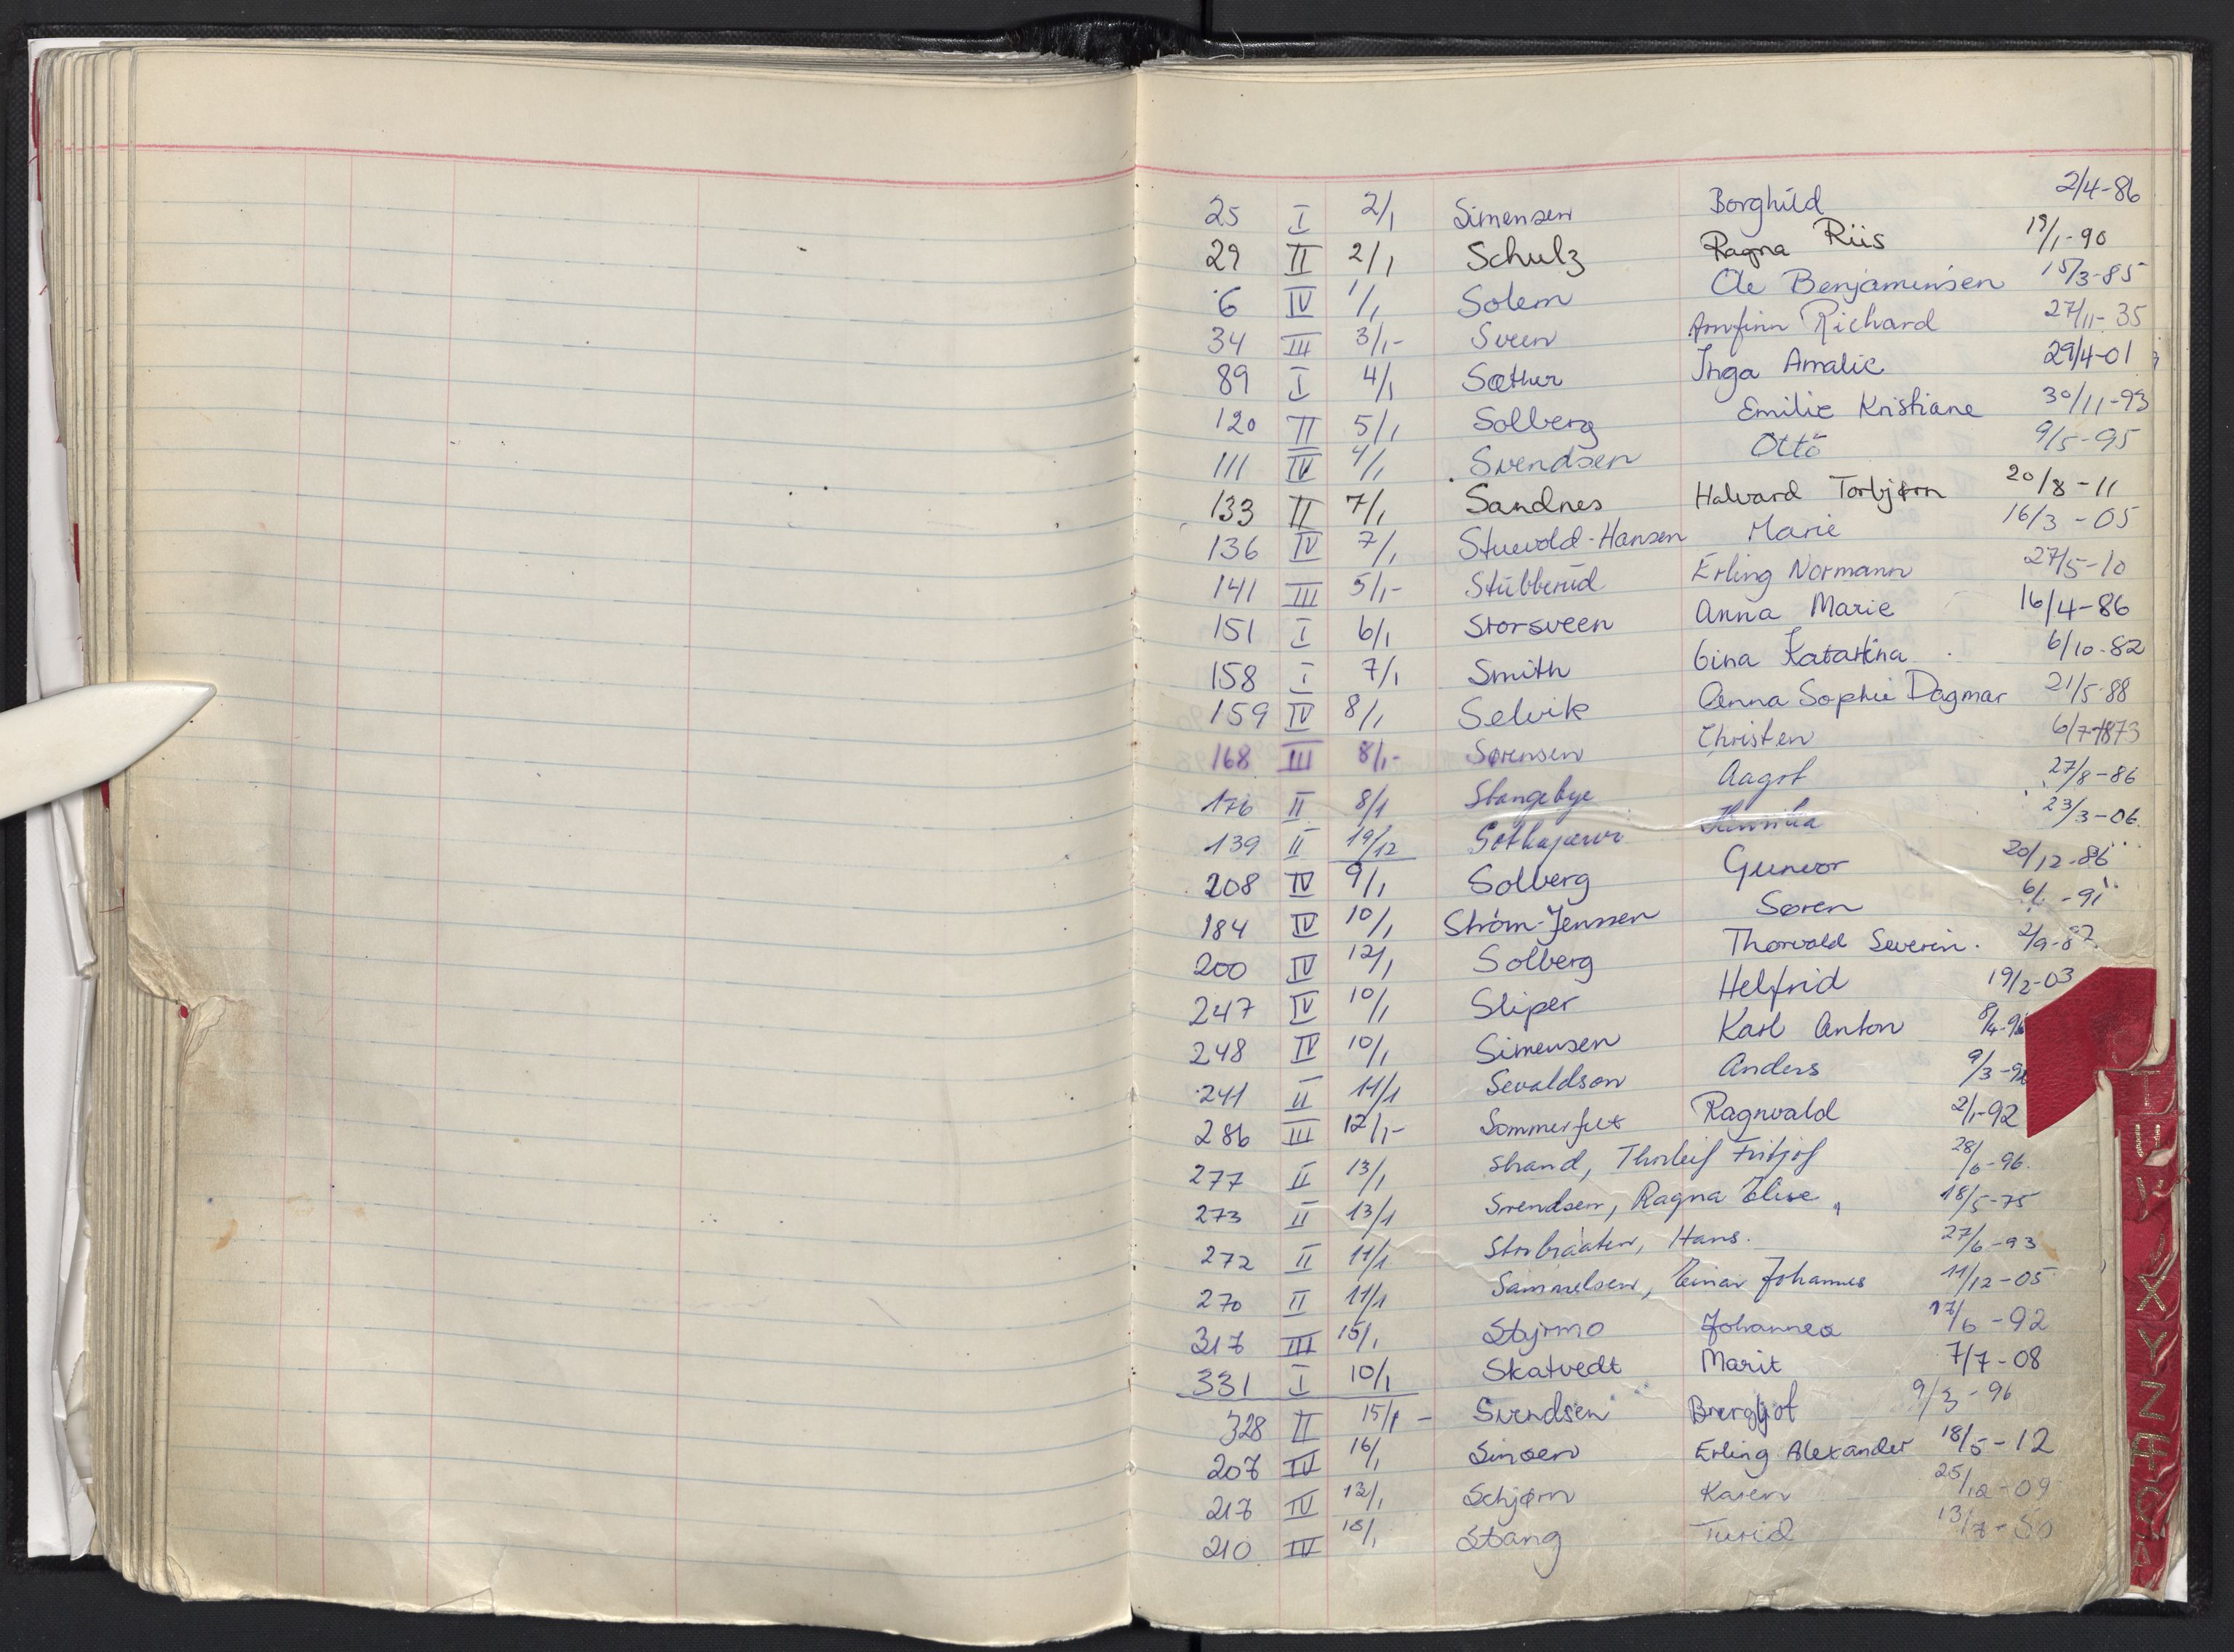 25 I 2/1 Simensen Borghild 2/4-86
29 II 2/1 Schulz Ragna Riis 19/1-90
6 IV 1/1 Solem Ole Benjaminsen 15/3-85
34 III 3/1- Sveen Arnfinn Richard 27/11-35
89 I 4/1 Sæther Inga Amalie 29/4-01
120 II 5/1 Solberg Emilie Kristiane 30/11-93
111 IV 4/1 Svendsen Otto 9/5-95
133 II 7/1 Sandnes Halvard Torbjørn 20/8-11
136 IV 7/1 Stuevold-Hansen Marie 16/3-05
141 III 5/1- Stubberud Erling Normann 27/5-10
151 I 6/1 Storsveen Anna Marie 16/4-86
158 I 7/1 Smith Gina Katarina 6/10-82
159 IV 8/1 Selvik Anna Sophie Dagmar 21/5-88
168 III 8/1- Sørensen Christen 6/7-1873
176 II 8/1 Stangebye Aagot 27/8-86
139 II 19/12 23/3-06
208 IV 9/1 Solberg Gunvor 20/12-86
184 IV 10/1 Strøm-Jenssen Søren 6/1-91
200 IV 12/1 Solberg Thorvald Severin. 2/9-87
247 IV 10/1 Sliper Helfrid 19/2-03
248 IV 10/1 Simensen Karl Anton
241 II 11/1 Sevaldson Anders
286 III 12/1- Sommerfelt Ragnvald 2/1-92
277 II 13/1 Strand, Thorleif Fritjof 28/6-96.
273 II 13/1 Svendsen, Ragna Elise 18/5-75
272 II 11/1 Storbråten, Hans. 27/6-93
270 II 11/1 Sammelsen, Einar Johannes 11/12-05
317 III 15/1 Styrmo Johannes 17/6-92
331 I 10/1 Skatvedt Marit 7/7-08
328 II 15/1- Svendsen Bergljot 9/3-96
207 IV 16/1 Sinsen Erling Alexander 18/5-12
217 IV 13/1 Schjørn Karen 25/12-09
210 IV Stang Turid